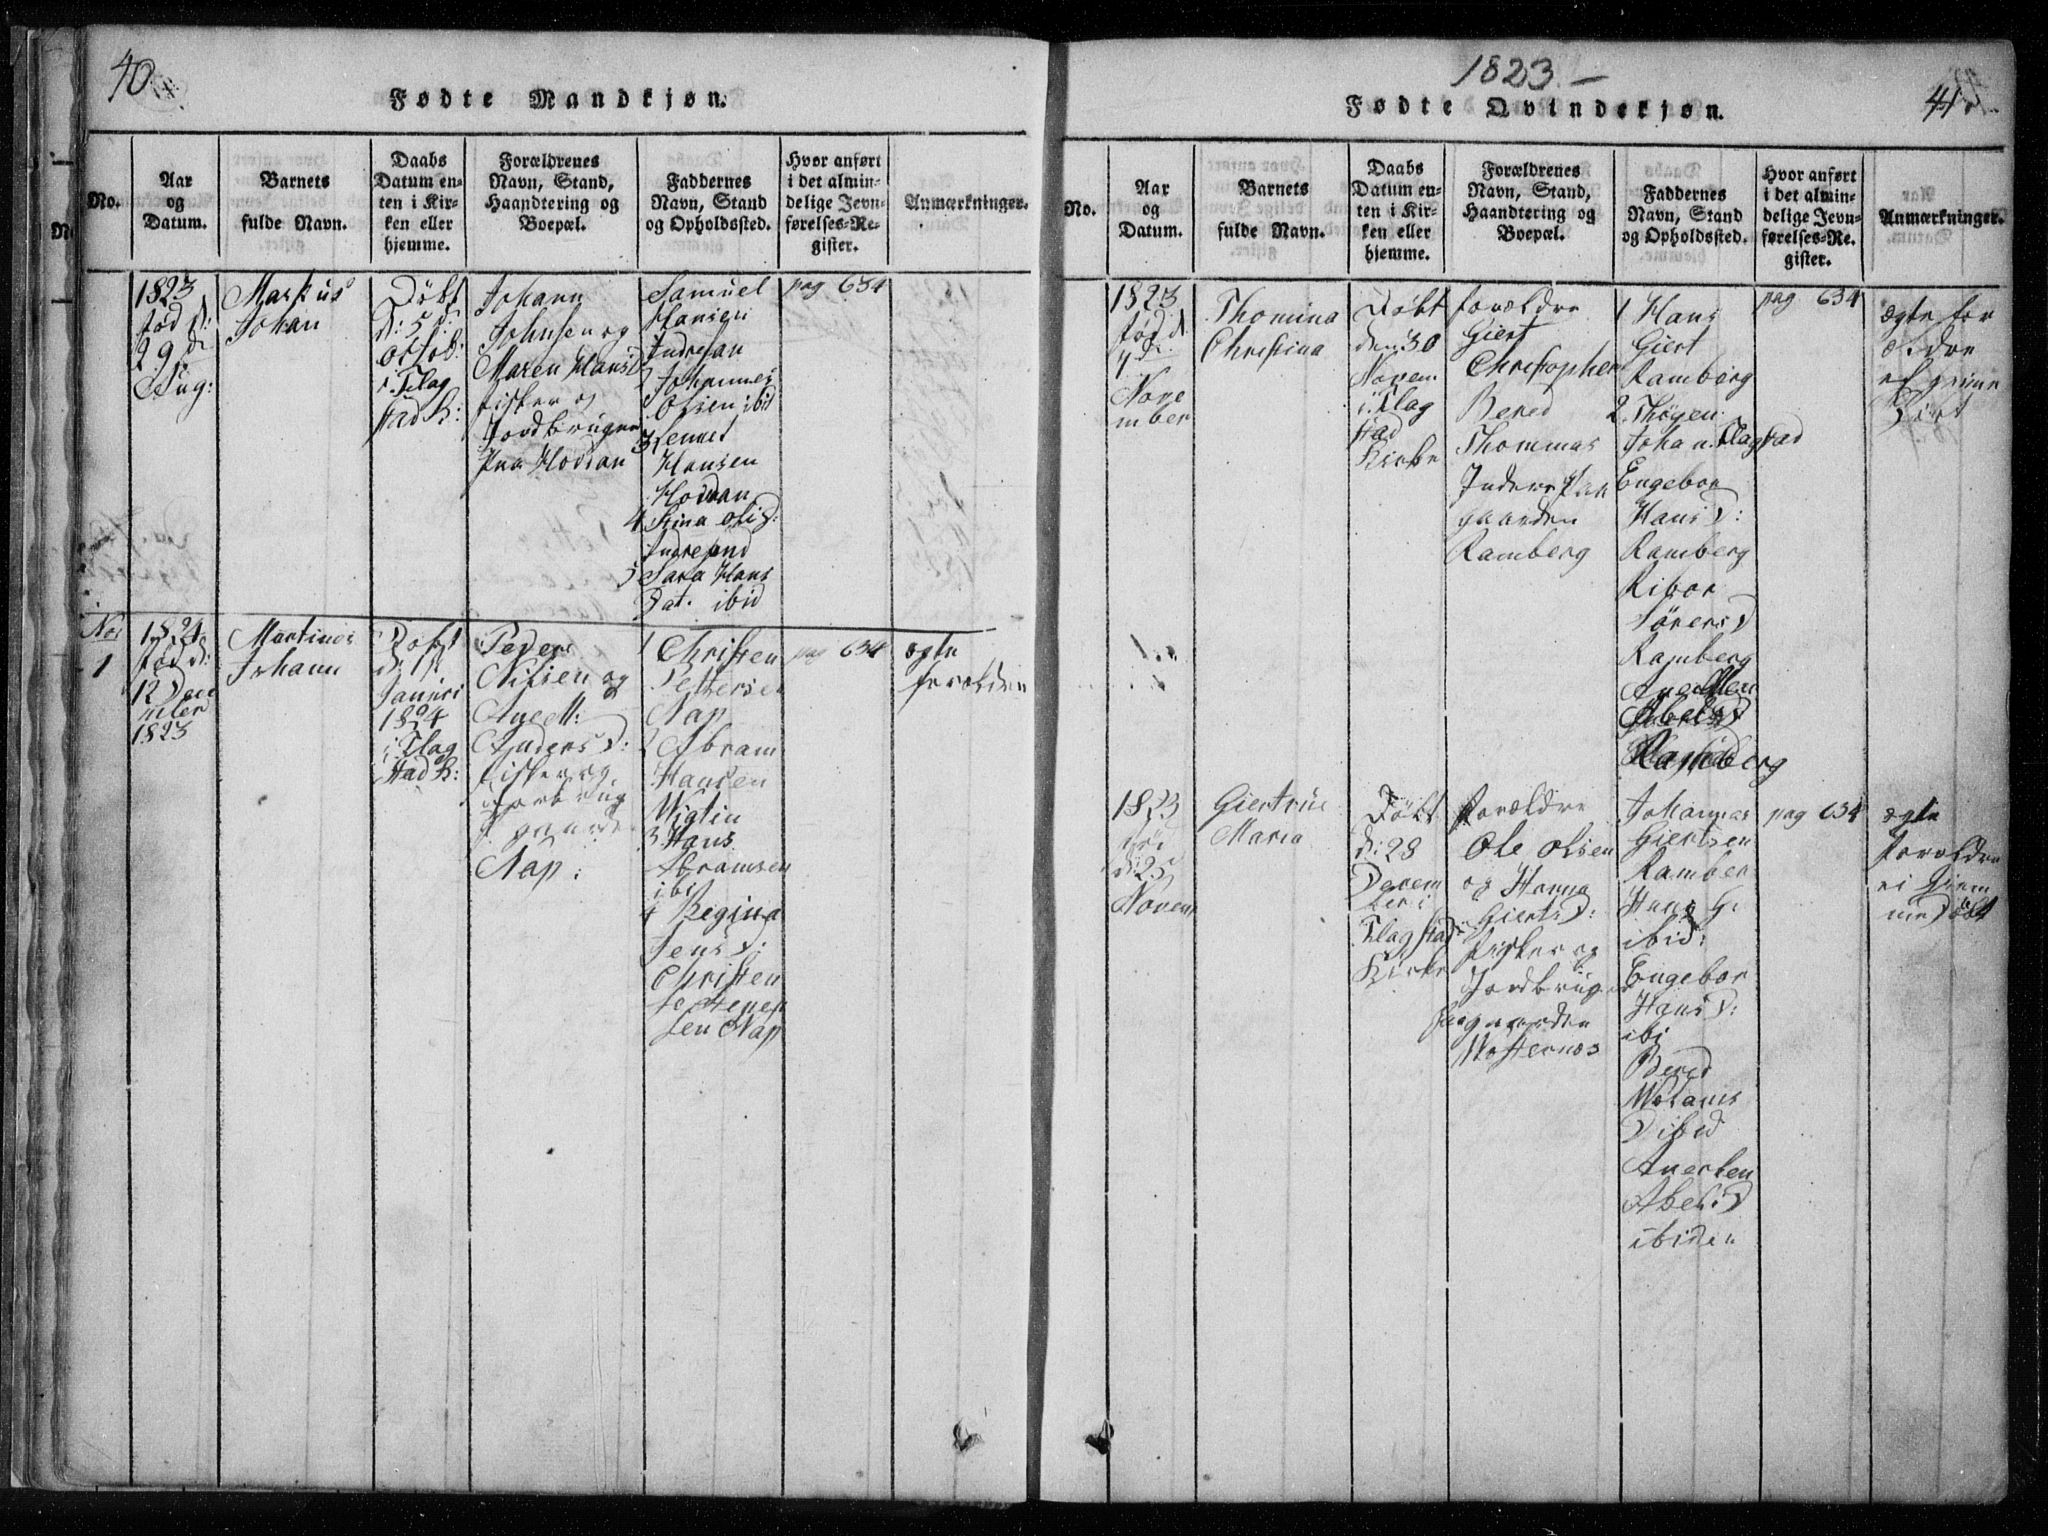 40
Fødte Mandkjøn.
No.
Aar
og
Datum.
Barnets
fulde Navn.
Daabs
Datum en-
ten i Kir-
ken eller
hjemme.
Forældrenes
Navn, Stand,
Haandtering og
Boepæl.
Faddernes
Navn, Stand
og Opholdssted.
Hvor anført
i det almin-
delige Jevn-
førelses-Re-
gister.
Anmærkninger.
1823
fød d:
29 d:
Aug:
Markus
Johan
Döbt
d: 5 d:
octob:
i Flag
stad K:
Johann
Johnsen og
Maren Hans D
fisker og
Jordbruger
Paa Hovdan
Samuel
Hansen
Indresan
2 Johannes
Olsen ibid
3 Hemet
Hansen
Hovdan
4 Stina Ols D:
Indresand
5 Sara Hans
Dat. ibid
pag 634
No
1
1824
fød d:
12 Decem
mber
1823
Martinus
Johann
Döbt
d: 1
Januari
1824
i Flag
stad K:
Peder
Nilsen og
Ane M:
Anders D:
fisker og
Jorbrug
gaarde
Nap:
1 Christen
Pettersen
Nap
2 Abram
Hansen
Wigtin
3 Hans
Abramsen
ibi
4 Regina
Jens D:
Christen
Pettersen
Nap
pag 634
ægte
forældre
1823.-
Fødte Qvindekjøn.
41
No.
Aar
og
Datum.
Barnets
fulde Navn.
Daabs
Datum en-
ten i Kir-
ken eller
hjemme.
Forældrenes
Navn, Stand,
Haandtering og
Boepæl.
Faddernes
Navn, Stand
og Opholdssted.
Hvor anført
i det almin-
delige Jevn-
førelses-Re-
gister.
Anmærkninger.
1823
fød d
7 d:
Nove
mber
Thomina
Christina
Döbt
den 30
Novem
i Flag
stad
Kirke
forældre
Giert
Christopher
Bered
Thommas
Inders Paa
gaarden
Ramberg
1 Hans
Giert
Ramberg
2. Thogen
Joha n. Flagstad
Engebor
Hans D:
Ramberg
Ribor
Sörens D
Ramberg
Anen
Abels D
Ramberg
pag 634
ægte for
ældre
1823
d: 25
Novem
Giertrue
Maria
Döbt
d: 28
Decem
ber i
Flagstad
Kirke
forældre
Ole Olsen
og Hanna
Gierts D:
fisker og
Jordbruger
paa gaarden
Mosternæs
Johannas
Giertsen
Ramber
Hans G:
ibid:
Engebor
Hans D:
ibi
Bered
D ibid
Anerken
Abels D
ibiden
pag 634
ægte
forældre